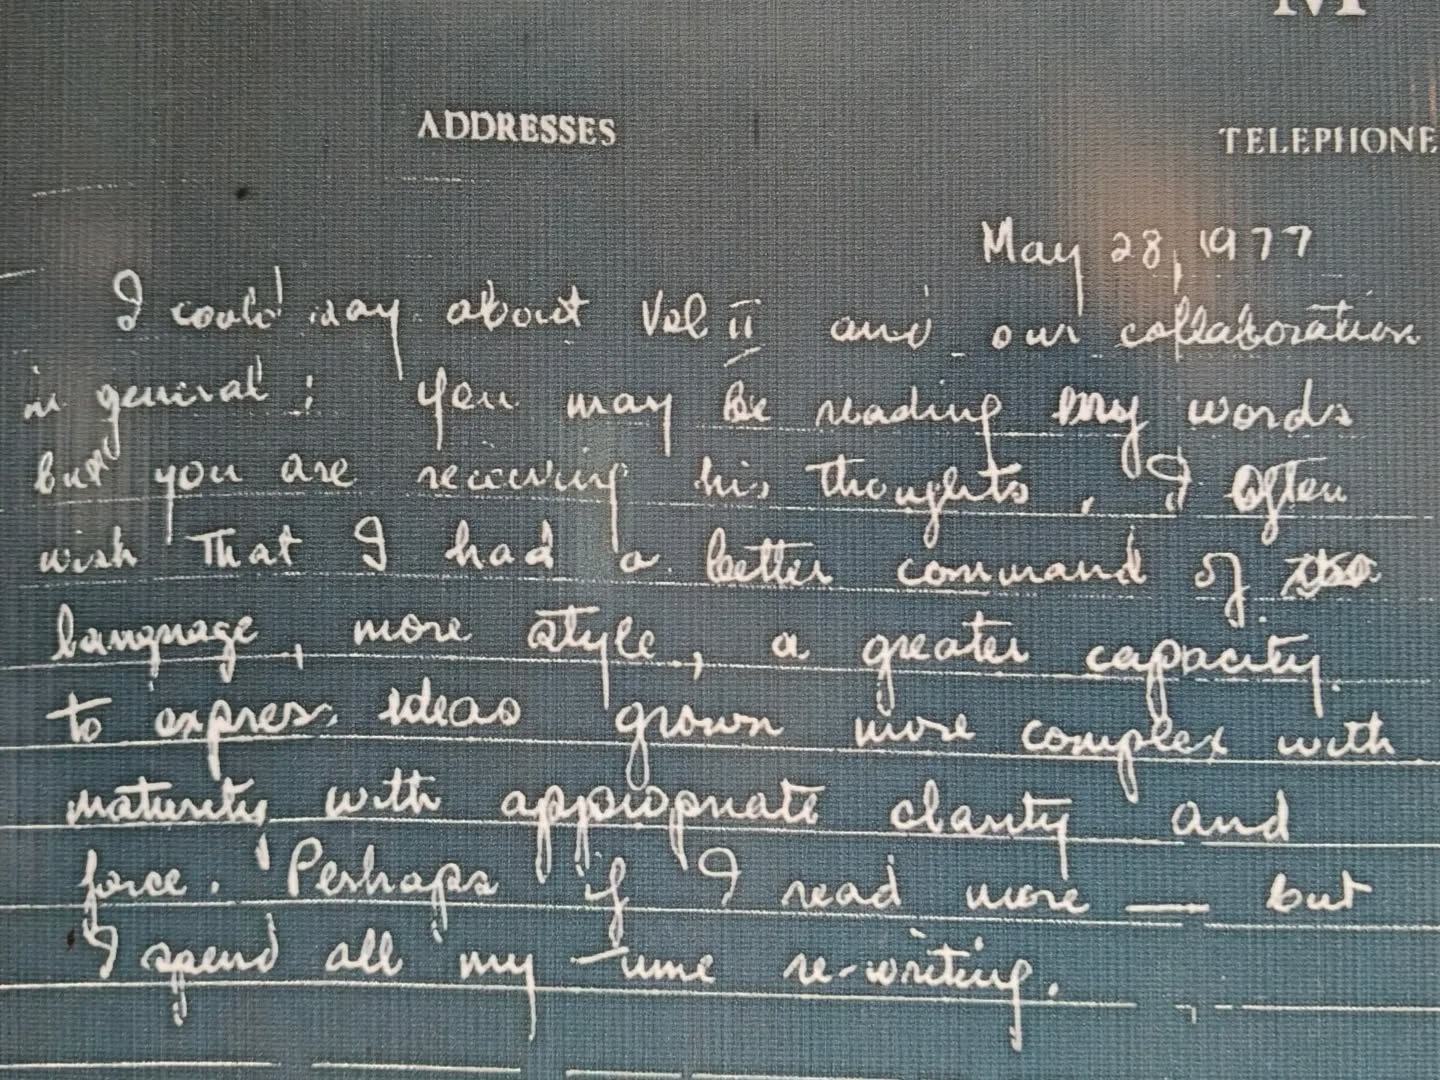 ADDRESSES
TELEPHONE
May 28, 1977
I could say about Vol II and our collaboration
in general: You may be reading my words
but you are receiving his thoughts. I often
wish that I had a better command of
language, more style, a greater capacity
to express ideas grown more complex with
maturity, with appropriate clarity and
force. Perhaps if I read more — but
I spend all my time re-writing.